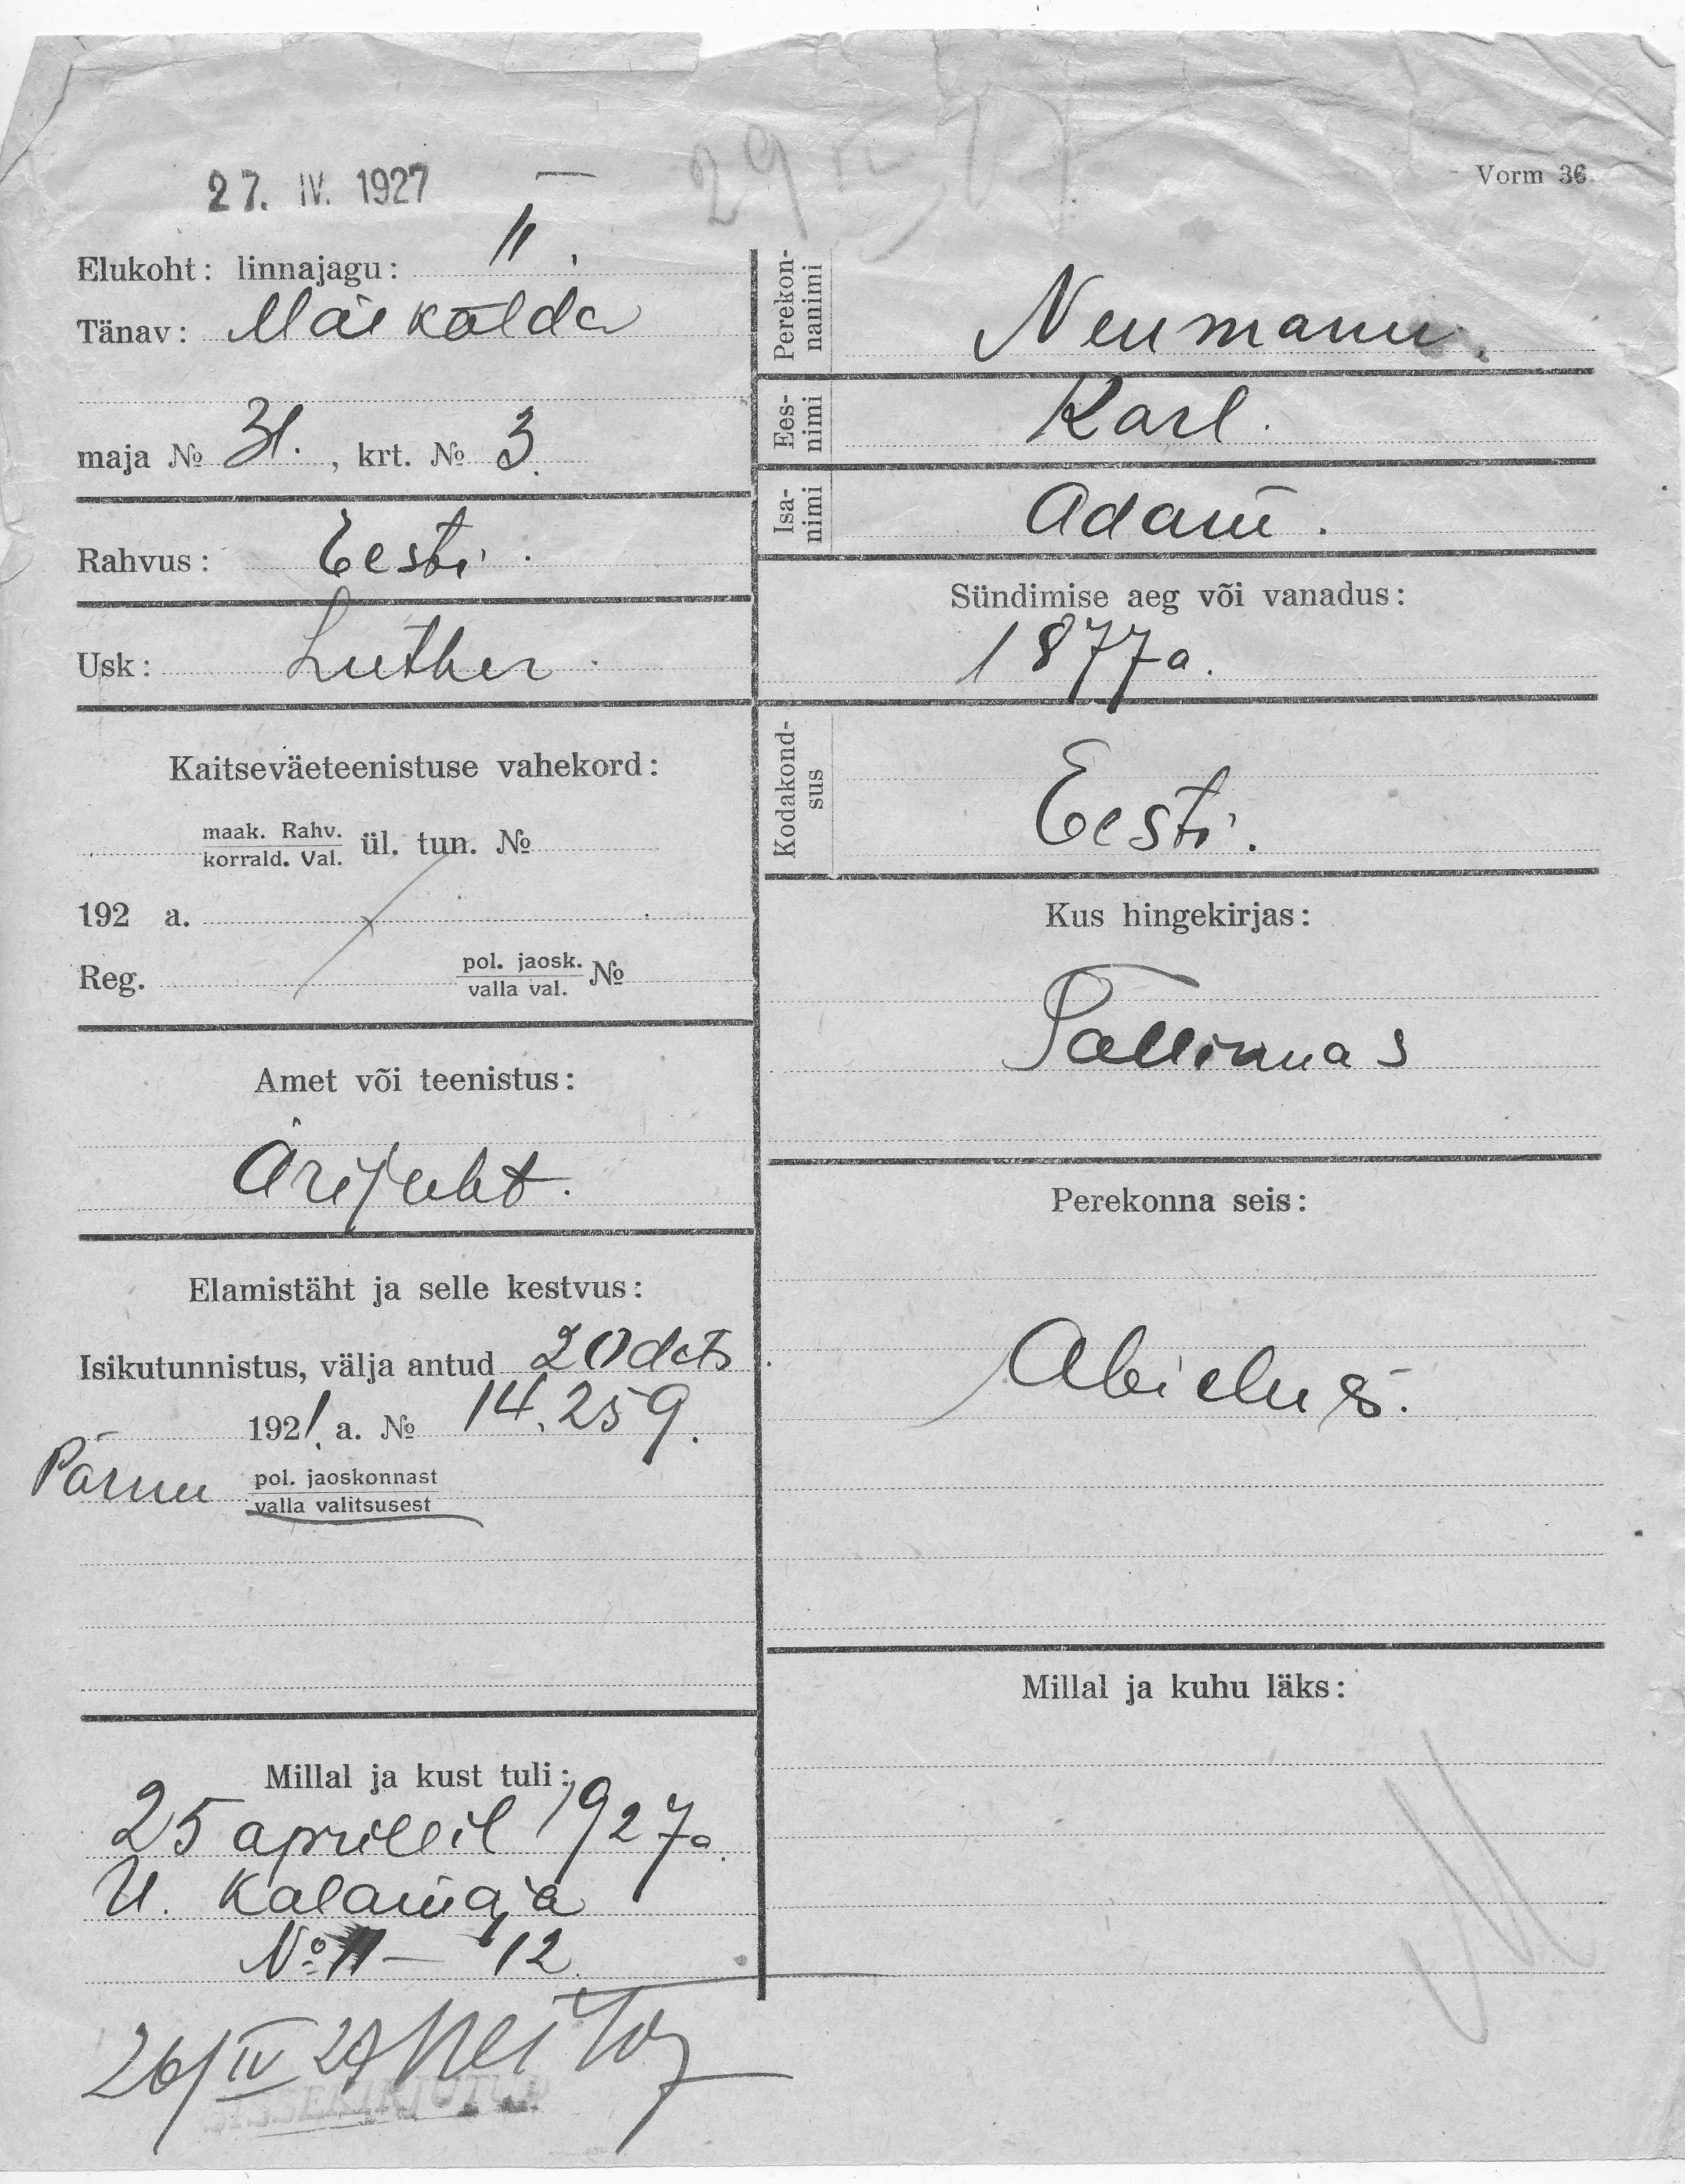 27. IV. 1927
29 IV 27
Vorm 36
Elukoht: linnajagu: II.
Tänav: Mäekalda
maja № 31. , krt. № 3.
Rahvus: Eesti.
Usk: Luther.
Kaitseväeteenistuse vahekord:
maak. Rahv.
korrald. Val. ül. tun. №
192 a.
Reg. pol. jaosk.
valla val. №
Amet või teenistus:
Ärijuht.
Elamistäht ja selle kestvus:
Isikutunnistus, välja antud 20 dets
1921. a. № 14.259.
Pärnu pol. jaoskonnast
valla valitsusest
Millal ja kust tuli:
25 aprillil 1927 a.
U. Kalamaja
№ 11 – 12.
26/IV 27
Perekonnanimi
Neumann.
Eesnimi
Karl.
Isanimi
Adam.
Sündimise aeg või vanadus:
1877 a.
Kodakondsus
Eesti.
Kus hingekirjas:
Tallinnas
Perekonna seis:
Abielus.
Millal ja kuhu läks: